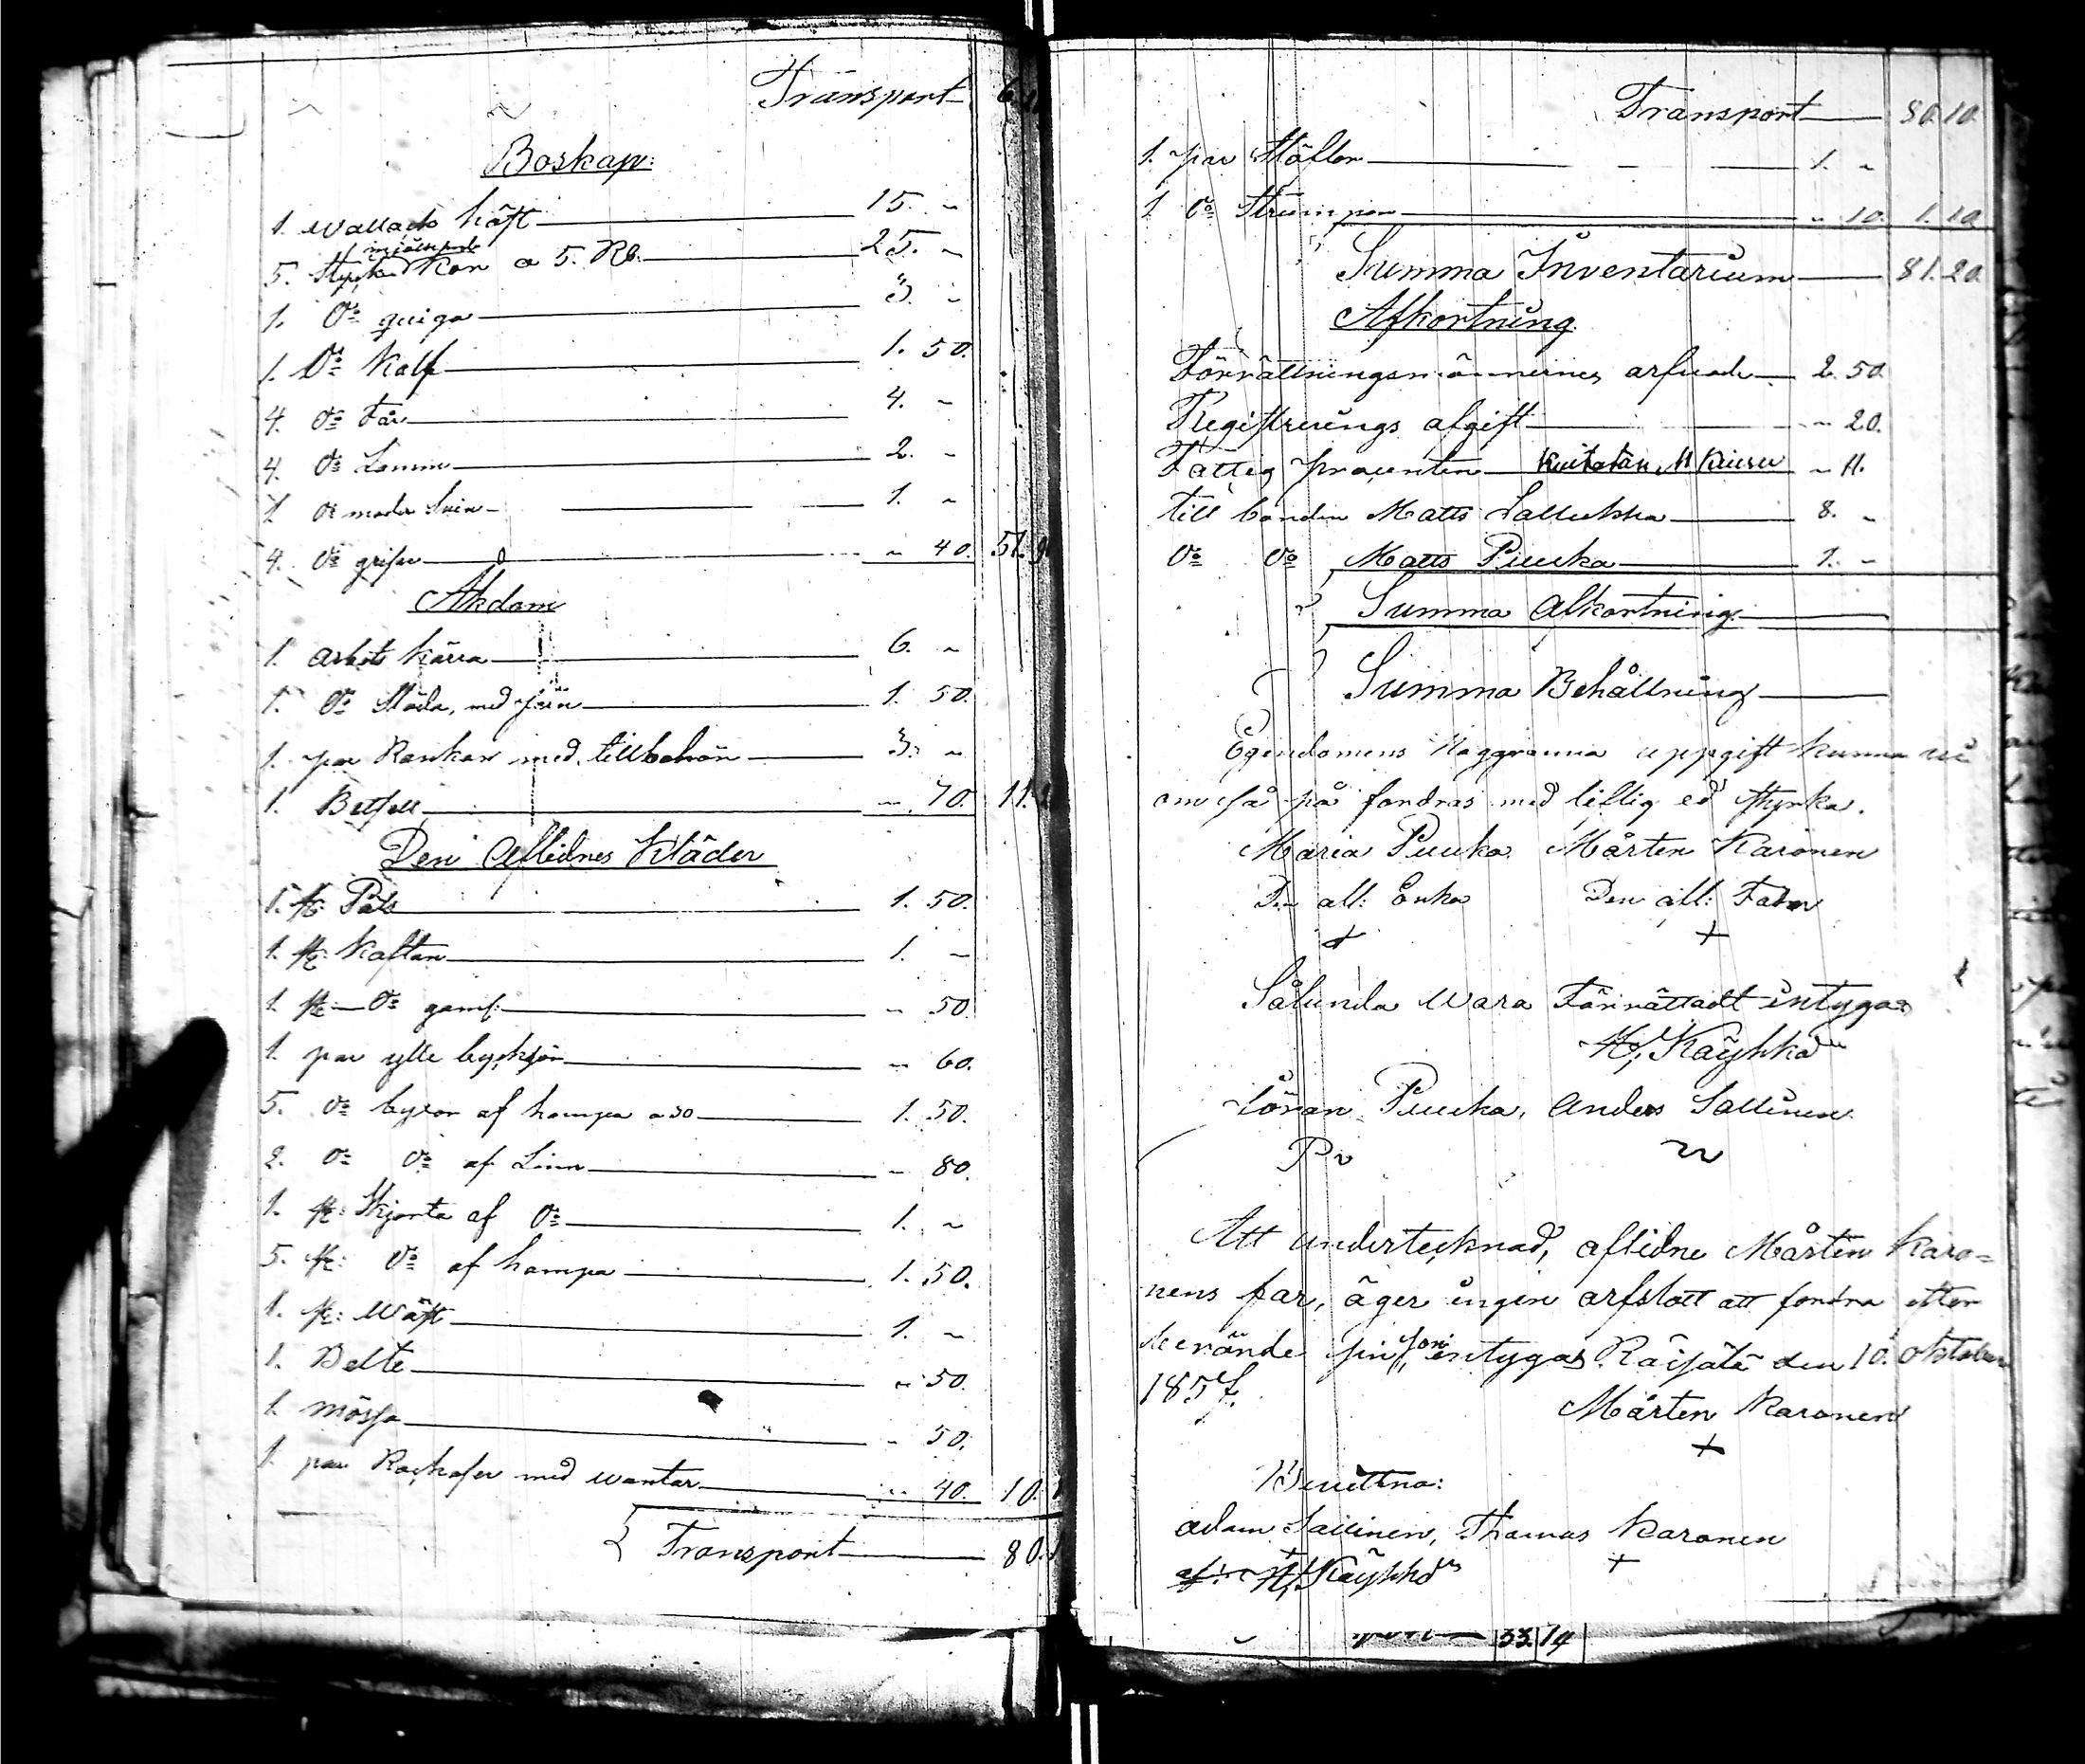 Transport 6.
Boskap:
1. Wallack häst 15. ~
mjölkande
5. Stycken Kor a 5. Rb. 25. ~
1. Do quiga 3. ~
1. Do Kalf 1. 50.
4. Do Får 4. ~
4. Do Lamm 2. ~
1 Do moder Svin 1. ~
4. Do grisar ~ 40. 51. 9
Åkdon
1. arbets kärra 6. ~
1. Do Släda, med järn 1. 50.
1. par Rankor med tillbehör 3. ~
1. Betsell ~ 70. 11. 2
Den Aflidnes Kläder
1. st: Päls 1. 50.
1. st: Kaftan 1. ~
1 st: Do gaml: ~ 50.
1. par ylle ~ 60.
5. Do byxor af hampa a 30 1. 50.
2. Do Do af Linn ~ 80.
1. st: Skjorta af Do 1. ~
5. st: Do af hampa 1. 50.
1. st: Wäst 1. ~
1. Belte ~ 50.
1. mössa ~ 50.
1. par med wantar ~ 40. 10.
Transport 80.
Transport 80.10.
1. par Stöflor 1. ~
1 Do Strumpor ~ 10. 1.10
Summa Inventarium 81.20.
Afkortning.
Förrättningsmännernes arfvode 2.50.
Registrerings afgift ~ 20.
Fattig procenten ~ 11.
till bonden Matts Sallukka 8. ~
Do Do Matts Piucka 1. ~
Summa Afkortning
Summa Behållning
Egendomens Noggranna uppgift kunna vi
om så på fordras med liflig ed styrka.
Maria Piucka. Mårten Karonen
Den afl: Enka Den afl: Fader
+ +
Sålunda Wara Förrättadt intygar
Käyhkö
Göran Piucka, Anders Sallinen
Att undertecknad, aflidne Mårten Karo=
nens far, äger ingen arfslott att fordra efter
berände sin son intygas Räisälä den 10. Oktober
1857.
Mårten Karonen
+
Bevittna:
Adam Sallinen, Thomas Karonen
+ +
Käyhkö
33 14